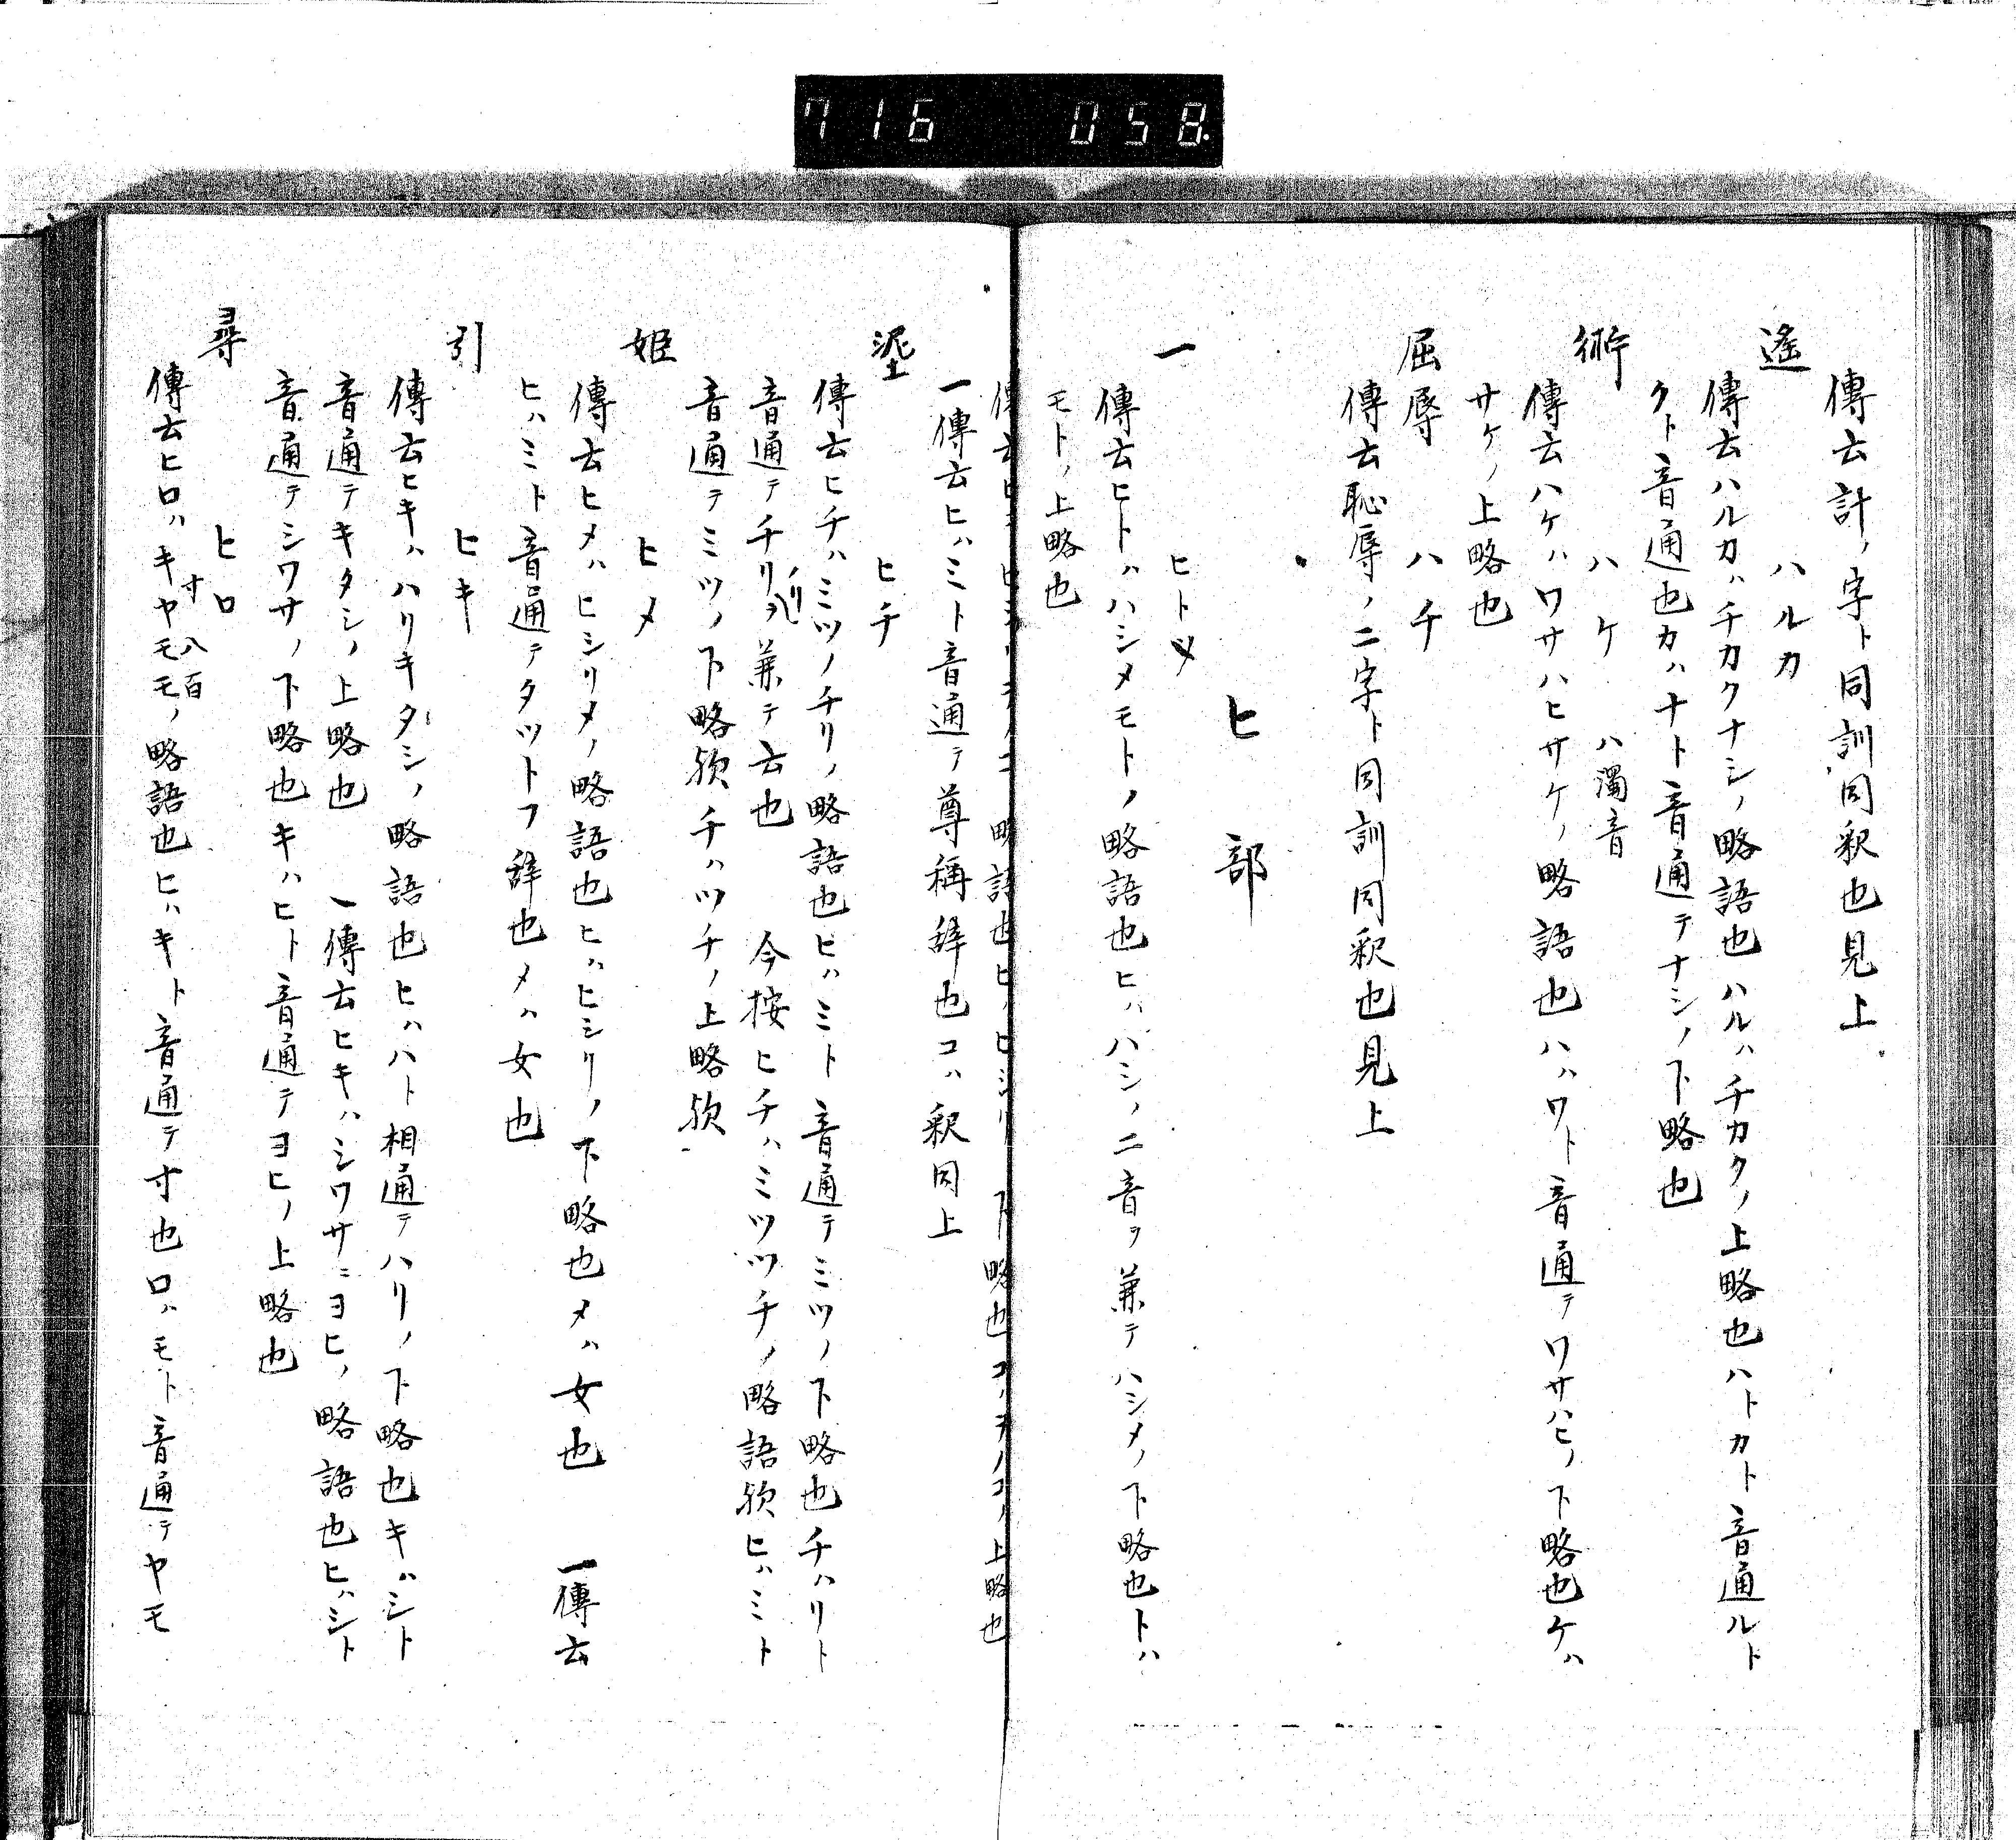 716 058
傳云計ノ字ト同訓同釈也見上
遙 ハルカ
傳云ハルカハチカクナシノ略語也ハルハチカクノ上略也ハトカト音通ルト
クト音通也カハナト音通テナシノ下略也
術 ハケ ハ濁音
傳云ハケハワサハヒサケノ略語也ハハワト音通テワサハヒノ下略也ケハ
サケノ上略也
屈辱 ハチ
傳云恥辱ノ二字ト同訓同釈也見上
ヒ部
一 ヒトツ
傳云ヒトハハシメモトノ略語也ヒハハシノ二音ヲ兼テハシメノ下略也トハ
モトノ上略也
略語也ヒハヒシリノ下略也コハヲノコノ上略也
一傳云ヒハミト音通テ尊稱辞也コハ釈同上
埿 ヒチ
傳云ヒチハミツノチリノ略語也ヒハミト音通テミツノ下略也チハリト
音通テチリヲ兼テ云也 今按ヒチハミツツチノ略語欤ヒハミト
音通テミツノ下略欤チハツチノ上略欤
姫 ヒメ
傳云ヒメハヒシリメノ略語也ヒハヒシリノ下略也メハ女也 一傳云
ヒハミト音通テタツトフ辞也メハ女也
引 ヒキ
傳云ヒキハハリキタシノ略語也ヒハハト相通テハリノ下略也キハシト
音通テキタシノ上略也 一傳云ヒキハシワサニヨヒノ略語也ヒハシト
音通テシワサノ下略也キハヒト音通テヨヒノ上略也
尋 ヒロ
傳云ヒロハキヤモモノ略語也ヒハキト音通テ寸也ロハモト音通テヤモ
寸八百